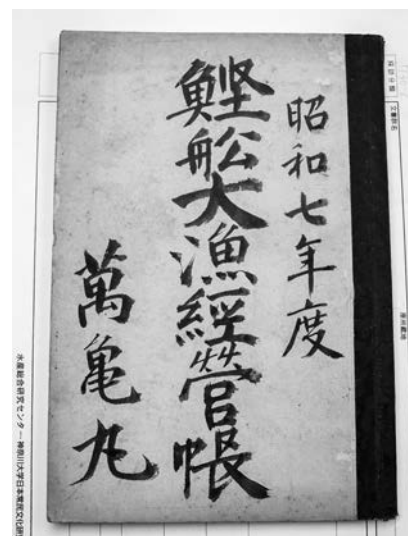 昭和七年度
鰹舩大漁經營帳
萬亀丸
水産総合研究センター・神奈川大学日本常民文化研